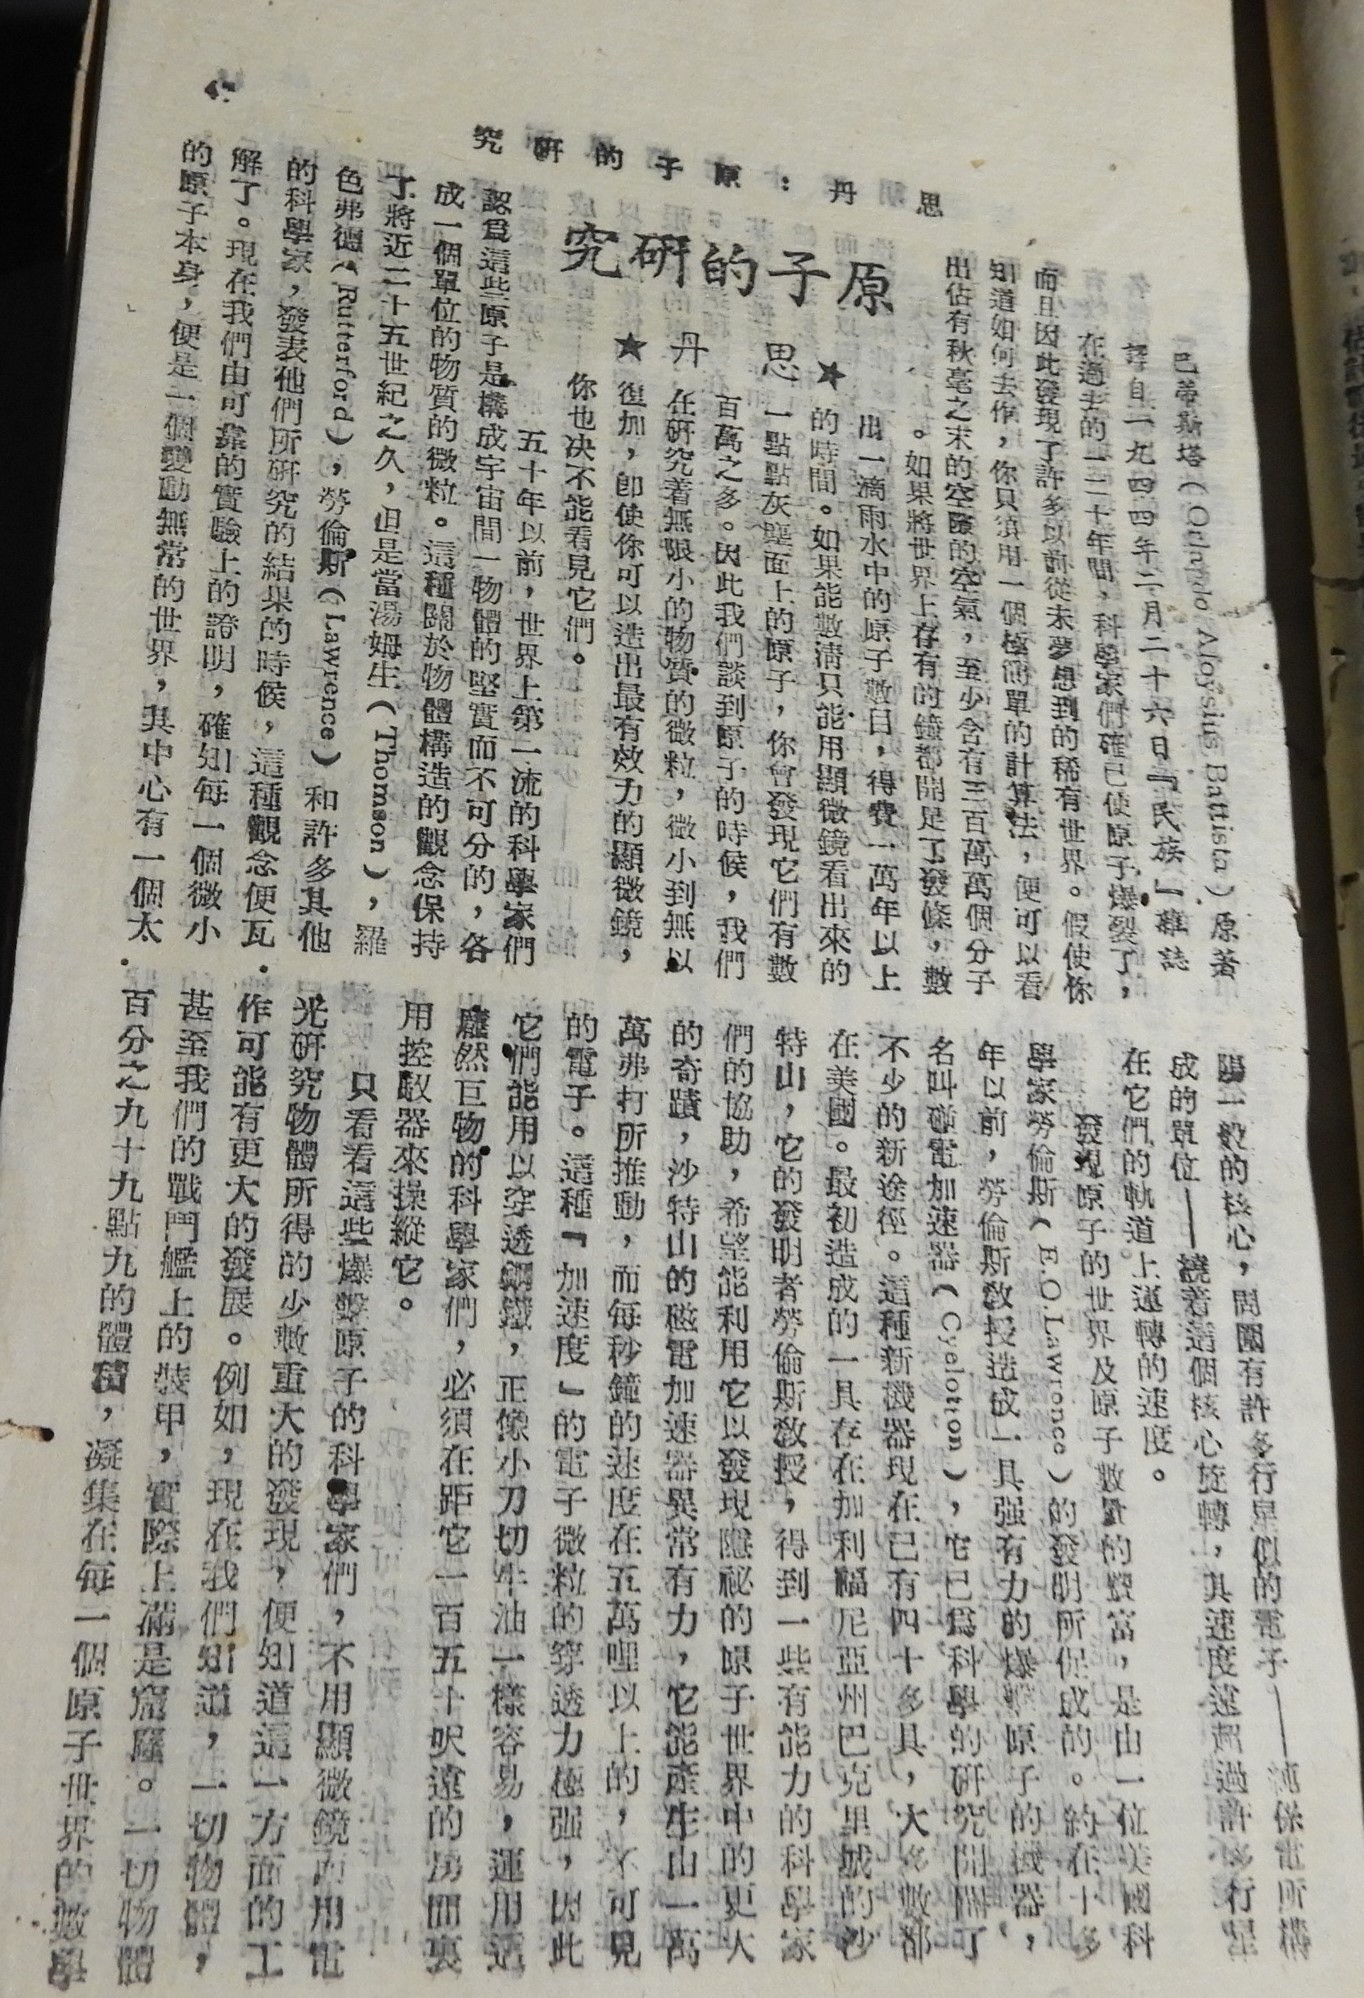 思丹：原子的研究
原子的研究
★思丹★
巴蒂斯塔（Orlando Aloysius Battista）原著
譯自一九四四年二月二十六日『民族』雜誌
在過去的一二十年間，科學家們確已使原子爆裂了，
而且因此發現了許多以前從未夢想到的稀有世界。假使你
知道如何去作，你只須用一個極簡單的計算法，便可以看
出佔有秋毫之末的空隙的空氣，至少含有三百萬萬個分子
。如果將世界上存有的鐘都開足了發條，數
出一滴雨水中的原子數目，得費一萬年以上
的時間。如果能數淸只能用顯微鏡看出來的
一點點灰塵面上的原子，你會發現它們有數
百萬之多。因此我們談到原子的時候，我們
在研究着無限小的物質的微粒，微小到無以
復加，卽使你可以造出最有效力的顯微鏡，
你也決不能看見它們。
五十年以前，世界上第一流的科學家們
認爲這些原子是構成宇宙間一物體的堅實而不可分的，各
成一個單位的物質的微粒。這種關於物體構造的觀念保持
了將近二十五世紀之久，但是當湯姆生（Thomson），羅
色弗德（Rutterford），勞倫斯（Lawrence）和許多其他
的科學家，發表他們所研究的結果的時候，這種觀念便瓦
解了。現在我們由可靠的實驗上的證明，確知每一個微小
的原子本身，便是一個變動無常的世界，其中心有一個太
陽一般的核心，周圍有許多行星似的電子——純係電所構
成的單位——繞着這個核心旋轉，其速度遠超過許多行星
在它們的軌道上運轉的速度。
發現原子的世界及原子數量的豐富，是由一位美國科
學家勞倫斯（E.O.Lawrence）的發明所促成的。約在十多
年以前，勞倫斯敎授造成一具强有力的爆擊原子的機器，
名叫磁電加速器（Cyclotron），它已爲科學的研究開闢了
不少的新途徑。這種新機器現在已有四十多具，大多數都
在美國。最初造成的一具存在加利福尼亞州巴克里城的沙
特山，它的發明者勞倫斯敎授，得到一些有能力的科學家
們的協助，希望能利用它以發現隱祕的原子世界中的更大
的奇蹟，沙特山的磁電加速器異常有力，它能產生出一萬
萬弗打所推動，而每秒鐘的速度在五萬哩以上的，不可見
的電子。這種『加速度』的電子微粒的穿透力極强，因此
它們能用以穿透鋼鐵，正像小刀切牛油一樣容易，運用這
龐然巨物的科學家們，必須在距它一百五十呎遠的房間裏
用控馭器來操縱它。
只看看這些爆擊原子的科學家們，不用顯微鏡而用電
光研究物體所得的少數重大的發現，便知道這一方面的工
作可能有更大的發展。例如，現在我們知道，一切物體，
甚至我們的戰鬥艦上的裝甲，實際上滿是窟窿。一切物體
百分之九十九點九的體積，凝集在每一個原子世界的數學